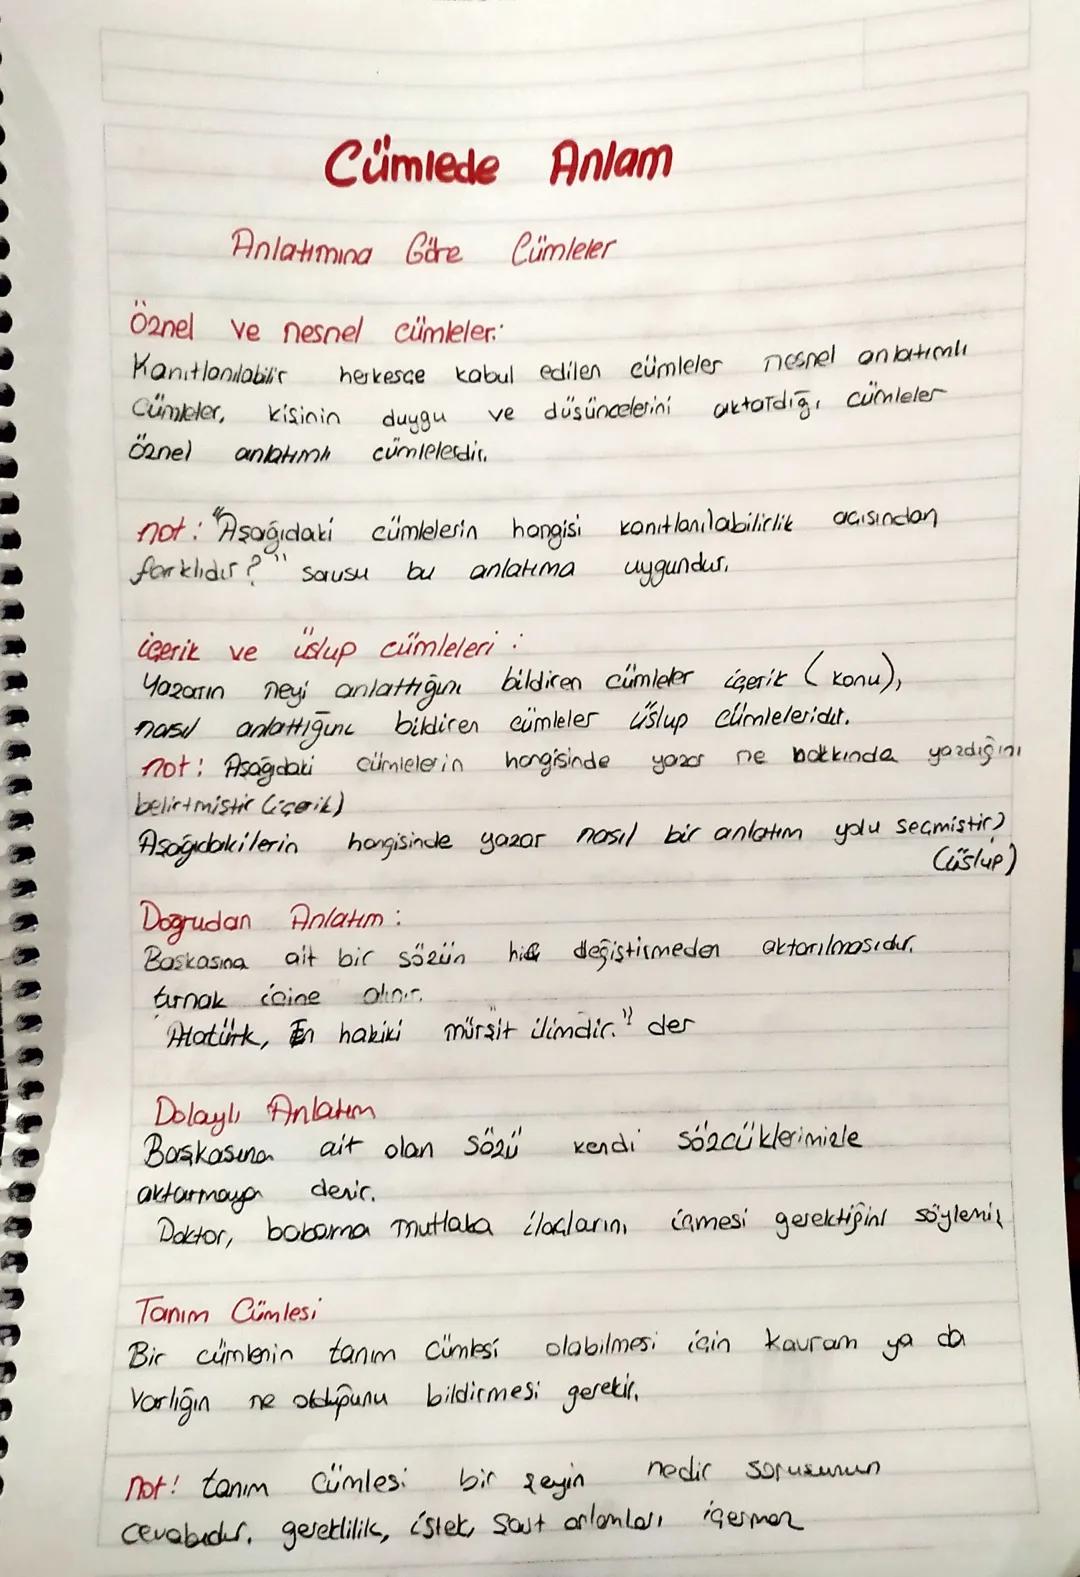 Cümlede Anlam
Anlatımına Göre Cümleler
Öznel ve nesnel cümleler:
Kanıtlanılabilir herkesçe kabul edilen cümleler nesnel anlatımlı
Cümleler, kişinin duygu ve düşüncelerini aktardığı cümleler
öznel anlatımlı cümlelerdir.
not: "Aşağıdaki cümlelerin hangisi kanıtlanılabilirlik açısından
farklıdır?" sorusu bu anlatıma uygundur.
içerik ve üslup cümleleri:
Yazarın neyi anlattığını bildiren cümleler içerik (konu),
nasıl anlattığını bildiren cümleler üslup cümleleridir.
not: Aşağıdaki cümlelerin hangisinde yazar ne hakkında yazdığını
belirtmiştir (içerik)
Aşağıdakilerin hangisinde yazar nasıl bir anlatım yolu seçmiştir)
(üslup)
Doğrudan Anlatım:
Başkasına ait bir sözün hiç değiştirmeden aktarılmasıdır.
tırnak içine alınır.
Atatürk, En hakiki mürşit ilimdir." der
Dolaylı Anlatım
Başkasına ait olan sözü kendi sözcüklerimizle
aktarmaya denir.
Doktor, babama mutlaka ilaçlarını içmesi gerektiğini söylemiş
Tanım Cümlesi
Bir cümlenin tanım cümlesi olabilmesi için kavram ya da
Varlığın ne olduğunu bildirmesi gerekir.
not! tanım cümlesi bir şeyin nedir sorusunun
cevabıdır. gereklilik, istek, şart anlamları içermez